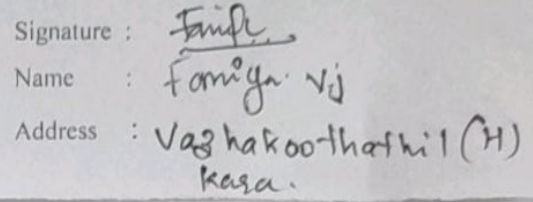 Signature :
Name : Famiya. Vj
Address : Vazhakoothathil (H)
Kara.